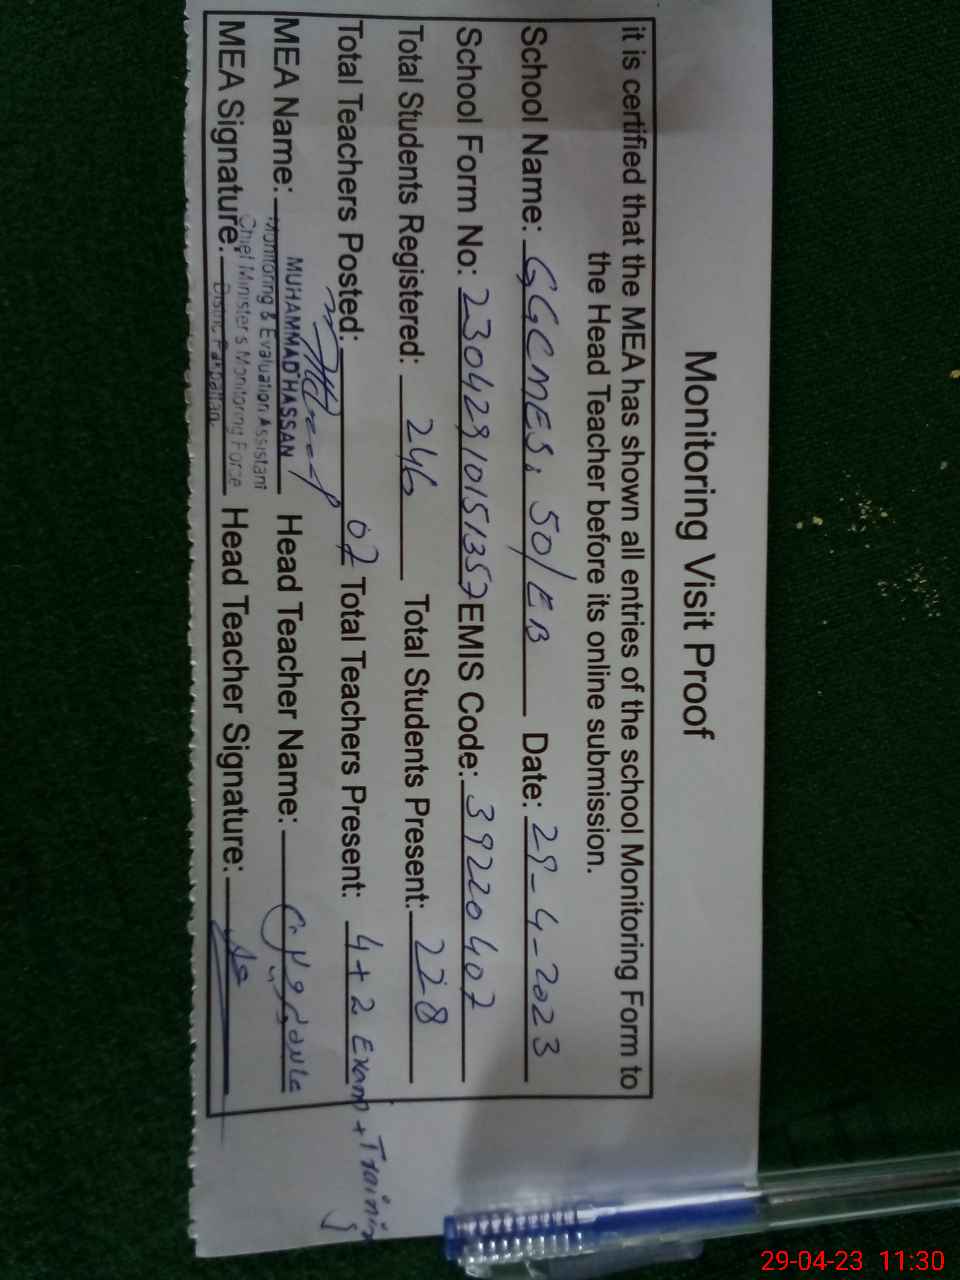 Monitoring Visit Proof
it is certified that the MEA has shown all entries of the school Monitoring Form to
the Head Teacher before its online submission.
School Name: GGCMES, 50/EB Date: 29-4-2023
School Form No: 23042910151357 EMIS Code: 39220407
Total Students Registered: 246 Total Students Present: 228
Total Teachers Posted: 07 Total Teachers Present: 4+2 Exam + Training
MEA Name: MUHAMMAD HASSAN Head Teacher Name:
Monitoring & Evaluation Assistant
Chief Minister's Monitoring Force
MEA Signature: District Pakpattan Head Teacher Signature:
29-04-23 11:30